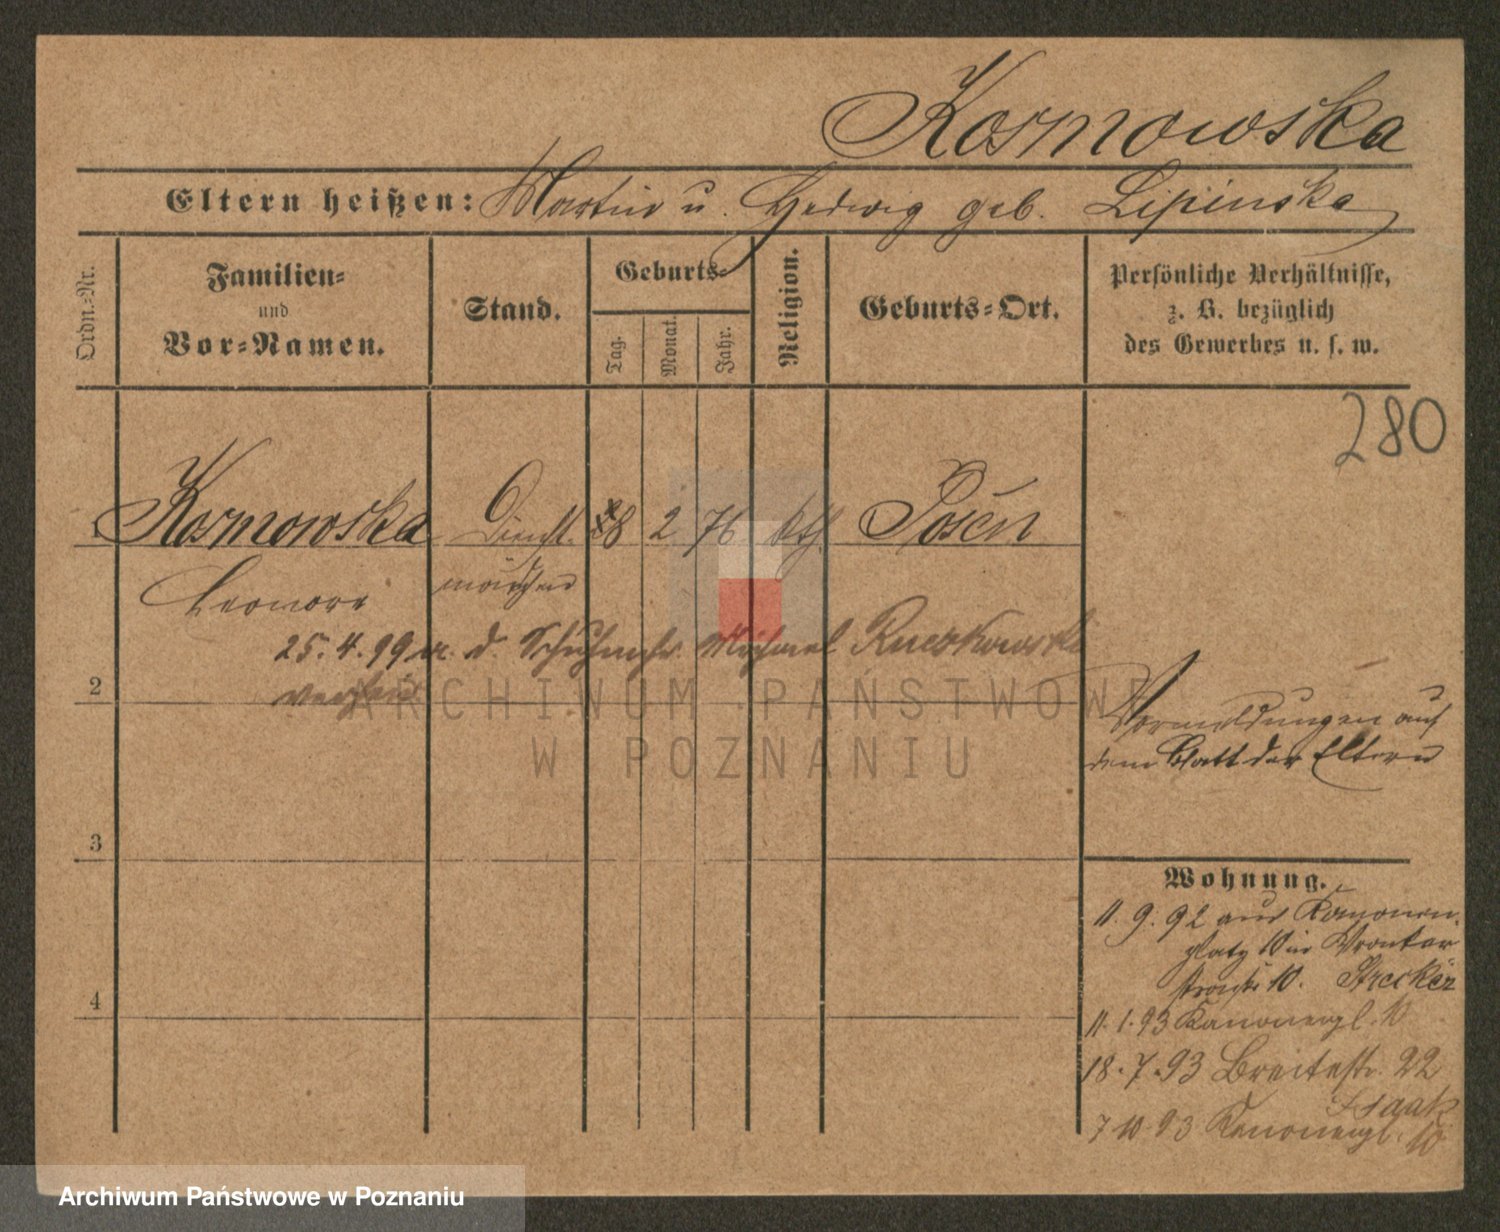 Kosmowska
Eltern heißen: Martin u. Hedwig geb. Lipinska
Ordn.=Nr.
Familien=
und
Vor=Namen.
Stand.
Geburts=
Tag.
Monat.
Jahr.
Religion.
Geburts=Ort.
Persönliche Verhältnisse,
z. B. bezüglich
des Gewerbes u. s. w.
280
1 Kosmowska Dienst 8 2 76 kth. Posen
Leonore mädchen
25. 4. 99 m. d. Schuhmchr. Michael Ruczkowski
2 verh
Vormeldungen auf
dem Blatt der Eltern
3
Wohnung.
11. 9. 92 aus Kanonen
platz 10 in Wronker
straße 10. Strecker
4
11. 1. 93 Kanonenpl. 10
18. 7. 93 Breitestr. 22
Isaak
7 10 93 Kanonenpl. 10
ARCHIWUM PAŃSTWOWE
W POZNANIU
Archiwum Państwowe w Poznaniu